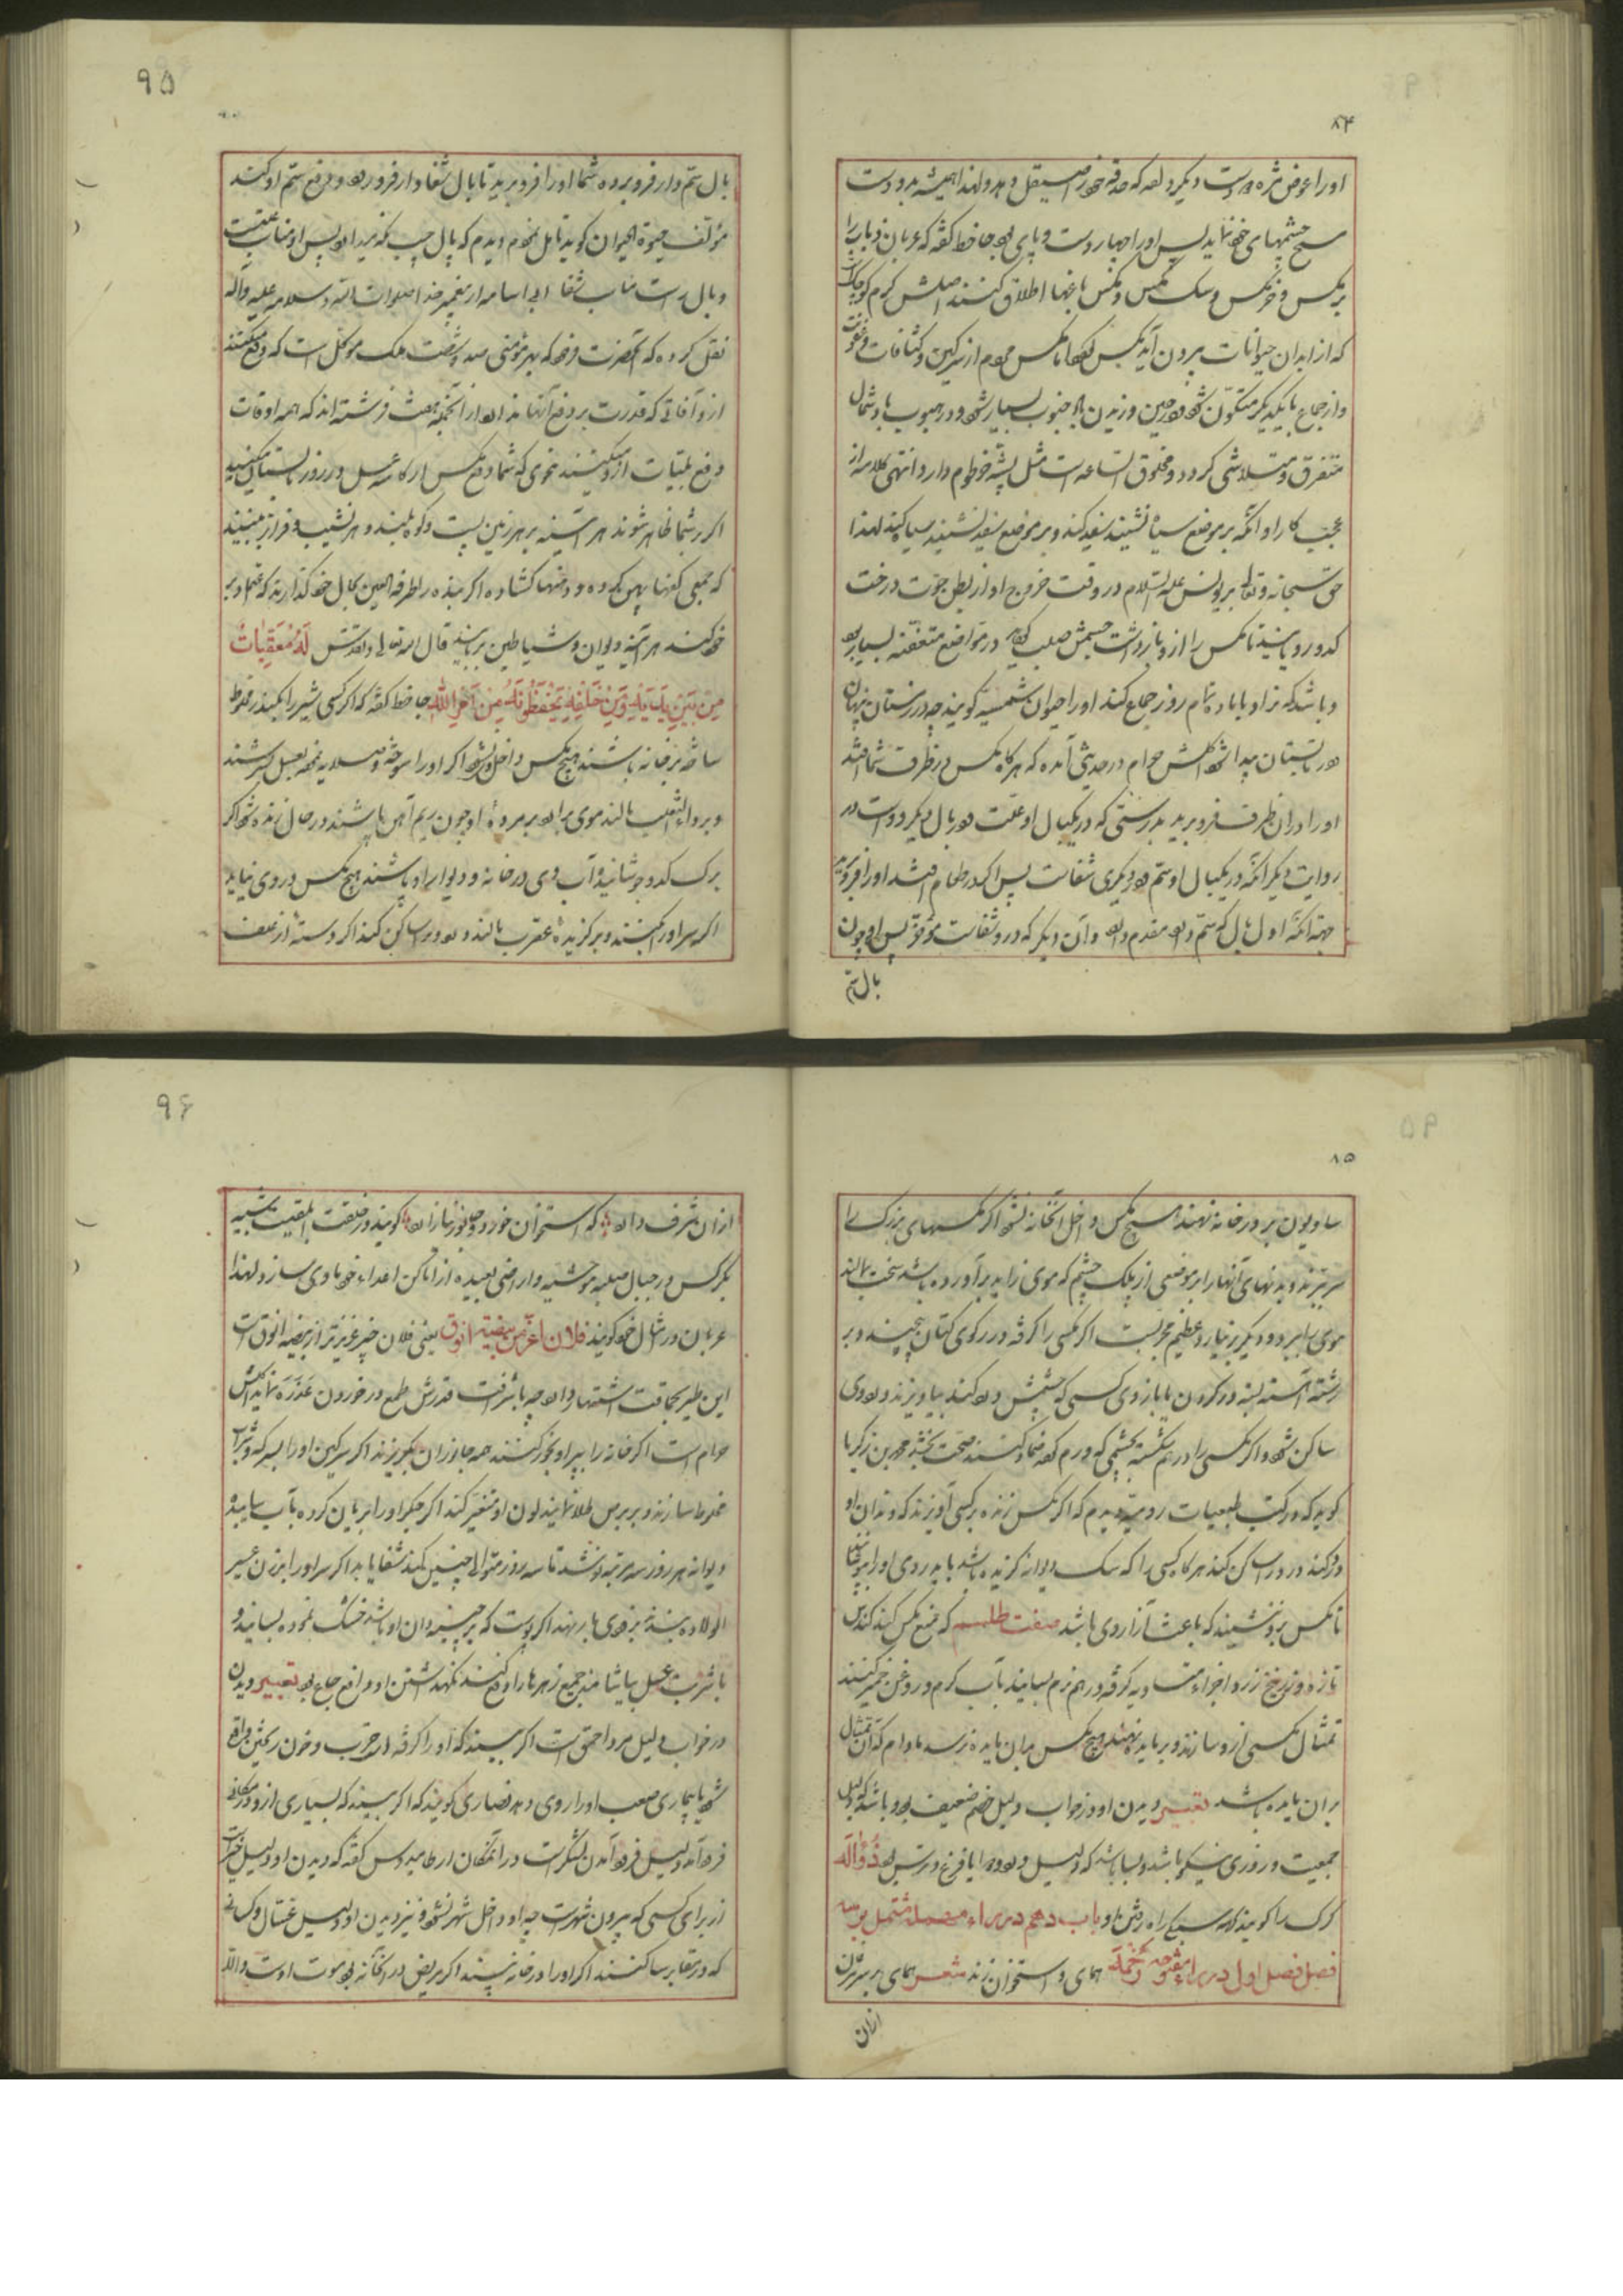 ۸۴
اورا عوض مژه دو دست دیگر داده که حدقه خودرا صیقل دهد ولهذا همیشه بدو دست
مسح چشمهای خود نماید پس اورا چهار دست و پای بود جاحظ گفته که عربان ذباب را
بر مگس و خرمگس و سک مگس و مگس باغها اطلاق کنند اصلش کرم کوچک است
که از ابدان حیوانات بیرون آید مگس گردد اما مگس مردم از سرکین و کثافات و عفونت
و از جماع با یکدیگر متکون شود و در حین وزیدن باد جنوب بسیار شود و در هبوب باد شمال
متفرق و متلاشی گردد و مخلوق الساعه است مثل پشه خرطوم دارد انتهی کلامه از
عجب کار او آنکه بر موضع سیاه نشیند سفید کند و بر موضع سفید نشیند سیاه کند لهذا
حق سبحانه و تعالی بر یونس علیه السلام در وقت خروج او از بطن حوت درخت
کدو رویانید تا مگس را از و بازداشت جسمش صلب گردد در مواضع متعفنه بسیار بود
و باشد که نر او با ماده تمام روز جماع کند اورا حیوان شمسیه گویند چه در زمستان پنهان
و در تابستان پیدا شود اکلش حرام در حدیثی آمده که هر گاه مگس در ظرف شما افتد
اورا در آن ظرف فرو برید بدرستی که در یکبال او علت و در بال دیگر دواست در
روایت دیگر آنکه در یکبال او سم و در دیگری شفاست پس اگر در طعام افتد اورا فرو برید
جهة آنکه اول بال که سم دارد مقدم دارد و آن دیگر که در و شفاست مؤخر پس او چون
بال سم
۹۵
بال سم دار فرو برده شما اورا فرو برید تا بال شفا دار فرو رود و دفع سم او کند
مؤلف حیوة الحیوان گوید تأمل نمودم دیدم که بال چپ مگس میدارد پس او مناسب علت
و بال راست مناسب شفا ابی امامه از پیغمبر خدا صلوات الله و سلامه علیه و آله
نقل کرده که آنحضرت فرمود که بهر مؤمنی صد و شصت ملک موکل است که دفع میکنند
از و آفاتی که قدرت بر دفع آنها ندارد از آنجمله هفت فرشته اند که همه اوقات
دفع بلیات از و میکنند نحوی که شما دفع مگس از کاسه عسل در روز تابستان میکنید
اگر بر شما ظاهر شوند هر آینه بر هر زمین پست و کوه بلند و هر نشیب و فراز به بینید
که جمعی کفها پهن کرده و دهنها کشاده اگر بنده را طرفة العین بحال خود گذارند که عمل
خود کند هر آینه دیوان و شیاطین بربایند قال الله تعالی و تقدس لَهُ مُعَقِّبَاتٌ
مِنْ بَيْنِ يَدَيْهِ وَمِنْ خَلْفِهِ يَحْفَظُونَهُ مِنْ أَمْرِ اللهِ جاحظ گفته که اگر کسی شیر را بکندر مخلوط
ساخته در خانه باشند هیچ مگس داخل نشود اگر اورا سوخته و صلایه نموده بعسل سرشند
و بر داء الثعلب مالند موی برآرد بر مرده او چون ریم آهن پاشند در حال زنده شود اگر
برک کدو جوشانیده آب وی در خانه و دیوار او پاشند هیچ مگس در وی نیاید
اگر سر اورا بکنند و بر گزیده عقرب مالند درد او را ساکن کند اگر دسته از علف
۸۵
سادیون بر در خانه نهند هیچ مگس داخل آنخانه نشود اگر مگسهای بزرگ را
سر ببرند و بدنهای آنها را بر موضعی از پلک چشم که موی زاید برآورده باشد سخت بمالند
موی را ببرد و دیگر نیارد عظیم مجربست اگر مگسی را گرفته در رکوی کتان پیچند و بر
رشته آهسته بسته در گردن یا بازوی کسی که چشمش درد کند بیاویزند درد وی
ساکن شود و اگر مگسی را در هم شکسته بچشمی که ورم کرده ضماد کنند صحت بخشد محمد بن زکریا
گوید که در کتب طبیعیات رومیه دیدم که اگر مگس زنده بر کسی آویزند که دندان او
درد کند درد را ساکن کند هر گاه کسی را که سک دیوانه گزیده باشد باید روی اورا بپوشانند
تا مگس بر و ننشیند که باعث آزار وی باشد صفت طلسم که منع مگس کند کندش
تازه و زرنیخ زرد اجزاء متساویه گرفته در هم نرم بسایند بآب گرم و روغن خمیر کنند
تمثال مگسی از و سازند و بر مایده نهند هیچ مگس بدان مایده نرسد مادام که آن تمثال
بر آن مایده باشد تعبیر دیدن او در خواب دلیل خصم ضعیف بود و باشد که دلیل
جمعیت و روزی نیکو باشد و بسا باشد که دلیل درد و ایا قرغ و ترس بود ذُؤَالَه
گرگ را گویند چه سبک راه رفتن او باب دهم در راء مهمله مشتمل بر سه
فصل فصل اول در راء مفتوحه رخمه همای و استخوان رند شعر همای بر سر مرغان
ازان
۹۶
از آن شرف دارد که استخوان خورد و جانور نیازارد گویند در خلقت المقیت شبیه
بکرکس در جبال صلبه موحشه و اراضی بعیده از اماکن اعداء خود ماوی سازد لهذا
عربان در مثال خود گویند فلان اعز من بیضة انوق یعنی فلان چیز عزیز تر از بیضه انوق است
این طیر بحماقت اشتهار دارد چه با شرافت قدرش طمع در خوردن عذره نماید اکلش
حرام است اگر خانه را بپر او بخور کنند همه جانوران بگریزند اگر سرکین اورا بسرکه و شراب
مخلوط سازند و بر برص طلا نمایند لون او متغیر کند اگر جگر اورا بریان کرده بآب ساییده
دیوانه هر روز سه مرتبه نوشد تا سه روز متوالی چنین کند شفا یابد اگر سر اورا بر زن عسیر
الولاده بندند بزودی بار نهد اگر پوست که بر چینه دان او باشد خشک نموده بسایند و
با شربت عسل بیاشامند جمیع زهرها را دفع کنند نگهداشتن او دافع جماع بود تعبیر دیدن
در خواب دلیل مرد احمق است اگر ببیند که اورا گرفته در حرب و خون ریختن واقع
شود یا بیماری صعب اورا روی دهد نصاری گویند که اگر ببیند که بسیاری از و در مکانی
فرود آمد دلیل فرود آمدن لشکر است در آنمکان ارطامیدورس گفته که دیدن او دلیل خیر است
از برای کسی که بیرون شهر است چه او داخل شهر نشود و نیز دیدن او دلیل غسال و کسانی
که در مقابر ساکنند اگر اورا در خانه بیند اگر مریض در آنخانه بود موت اوست والله